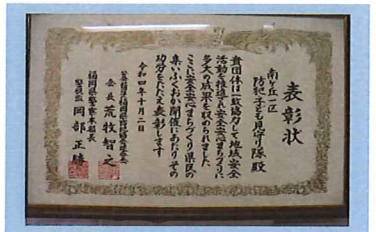 表彰状
南ヶ丘一区
防犯子ども見守り隊 殿
貴団体は一致協力して地域安全
活動を推進され安全安心まちづくりに
多大の成果を収められました
ここに安全安心まちづくり県民の
集いふくおか開催にあたりその
功労をたたえ表彰します
令和四年十月二日
会長 荒牧智之
福岡県警察本部長
警視監 岡部正勝